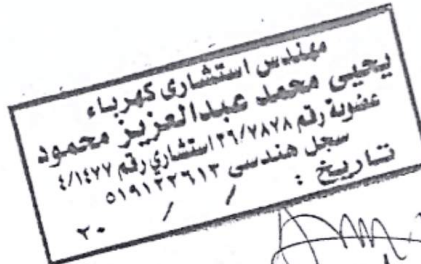 مهندس استشارى كهرباء
يحيى محمد عبدالعزيز محمود
عضوية رقم ٣٦/٧٨٧٨ استشاري رقم ٤/١٤٧٧
سجل هندسى ٥١٩١٢٢٦١٣
تاريخ : / / ٢٠